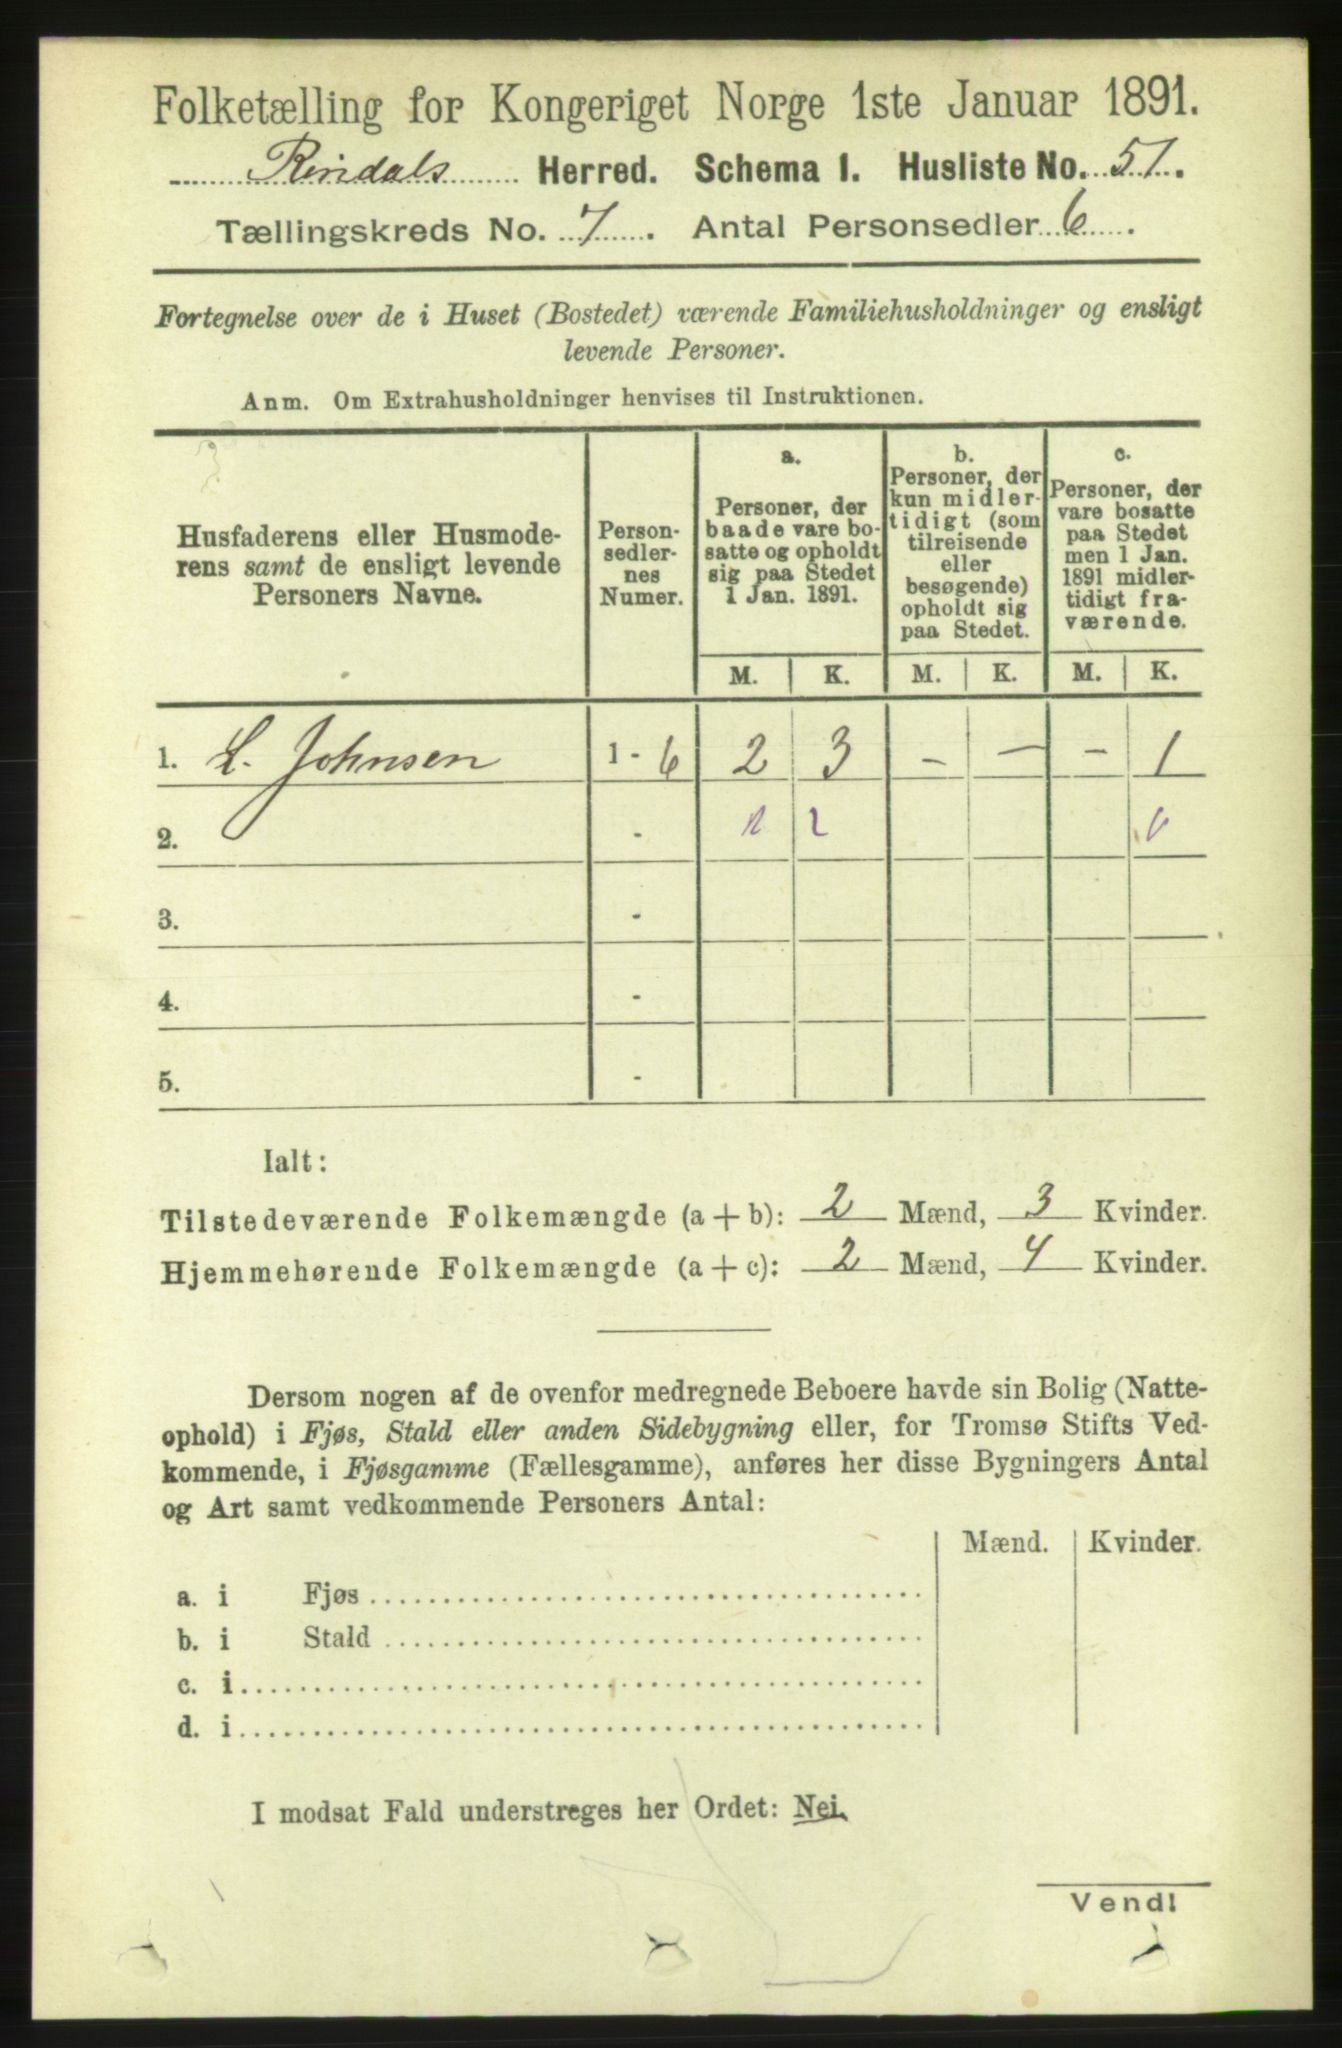 Folketælling for Kongeriget Norge 1ste Januar 1891.
Rindals Herred. Schema 1. Husliste No. 51.
Tællingskreds No. 7. Antal Personsedler 6.
Fortegnelse over de i Huset (Bostedet) værende Familiehusholdninger og ensligt
levende Personer.
Anm. Om Extrahusholdninger henvises til Instruktionen.
Husfaderens eller Husmode-
rens samt de ensligt levende
Personers Navne.
Person-
sedler-
nes
Numer.
a.
Personer, der
baade vare bo-
satte og opholdt
sig paa Stedet
1 Jan. 1891.
b.
Personer, der
kun midler-
tidigt (som
tilreisende
eller
besøgende)
opholdt sig
paa Stedet.
c.
Personer, der
vare bosatte
paa Stedet
men 1 Jan.
1891 midler-
tidigt fra-
værende.
M. K. M. K. M. K.
1. L. Johnsen 1 - 6 2 3 - - - 1
2. -
3. -
4. -
5. -
Ialt:
Tilstedeværende Folkemængde (a + b): 2 Mænd, 3 Kvinder.
Hjemmehørende Folkemængde (a + c): 2 Mænd, 4 Kvinder.
Dersom nogen af de ovenfor medregnede Beboere havde sin Bolig (Natte-
ophold) i Fjøs, Stald eller anden Sidebygning eller, for Tromsø Stifts Ved-
kommende, i Fjøsgamme (Fællesgamme), anføres her disse Bygningers Antal
og Art samt vedkommende Personers Antal:
Mænd. Kvinder.
a. i Fjøs
b. i Stald
c. i
d. i
I modsat Fald understreges her Ordet: Nei.
Vend!